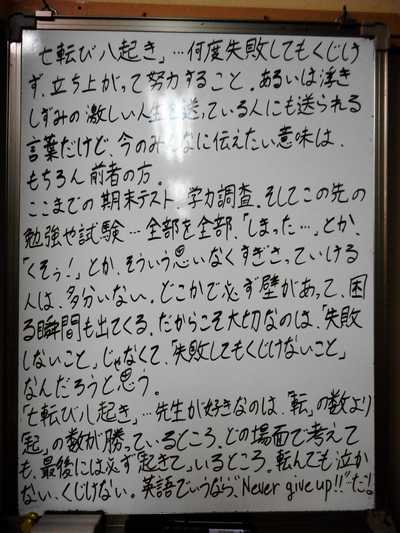 七転び八起き」…何度失敗してもくじけ
ず、立ち上がって努力すること。あるいは浮き
しずみの激しい人生を送っている人にも送られる
言葉だけど、今のみんなに伝えたい意味は、
もちろん前者の方。
ここまでの期末テスト、学力調査、そしてこの先の
勉強や試験…全部を全部、「しまった…」とか、
「くそぅ!」とか、そういう思いなくすぎさっていける
人は、多分いない。どこかで必ず壁があって、困
る瞬間も出てくる。だからこそ大切なのは、「失敗
しないこと」じゃなくて、「失敗してもくじけないこと」
なんだろうと思う。
「七転び八起き」…先生が好きなのは、「転」の数より
「起」の数が勝っているところ。どの場面で考えて
も、最後には必ず「起きて」いるところ。転んでも泣か
ない、くじけない。英語でいうなら、"Never give up!!"だ!